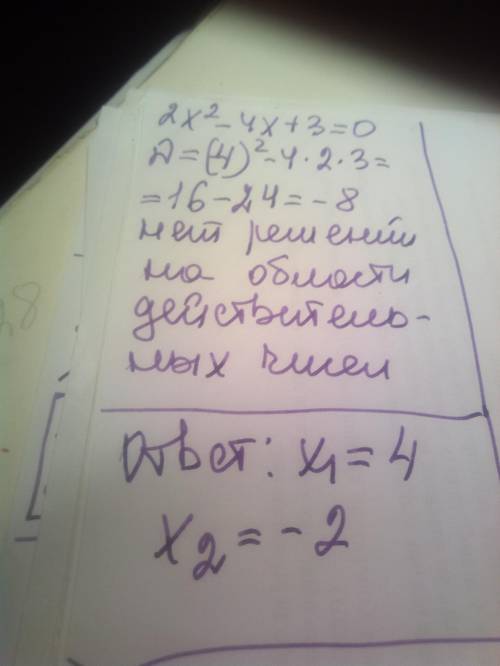 2x²-4x+3=0
D=(4)²-4·2·3=
=16-24=-8
нет решений
на области
действитель-
ных чисел
Ответ: x₁=4
x₂=-2